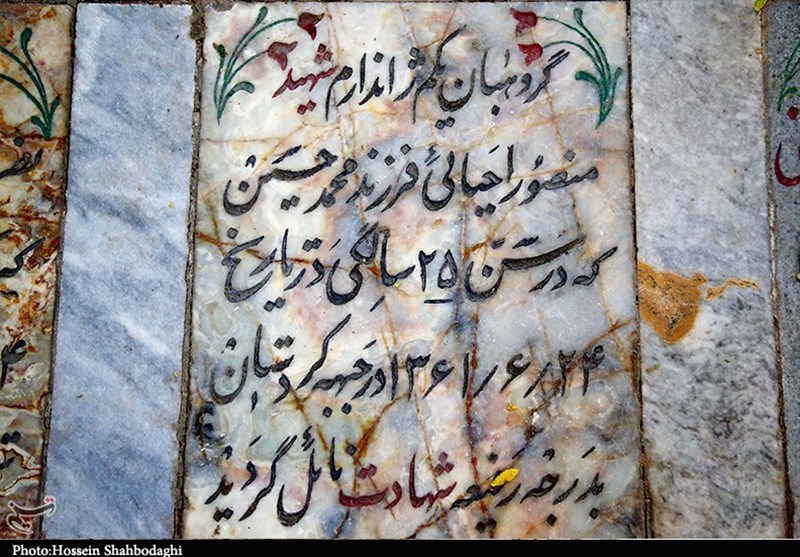 گروهبان یکم ژاندارم شهید
منصور احیائی فرزند محمد حسین
که در سنّ ۲۵ سالگی در تاریخ
۱۳۶۱/۶/۲۴ در جبهه کردستان
بدرجه رفیعه شهادت نائل گردید
Photo:Hossein Shahbodaghi